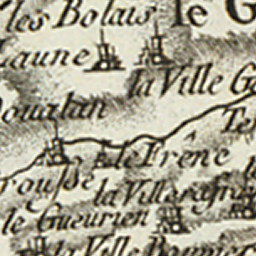 les Bolais le G
Laune
la Ville G
Doualan
Te
le Frêne
rousse
la Ville
le Gueurien
la Ville